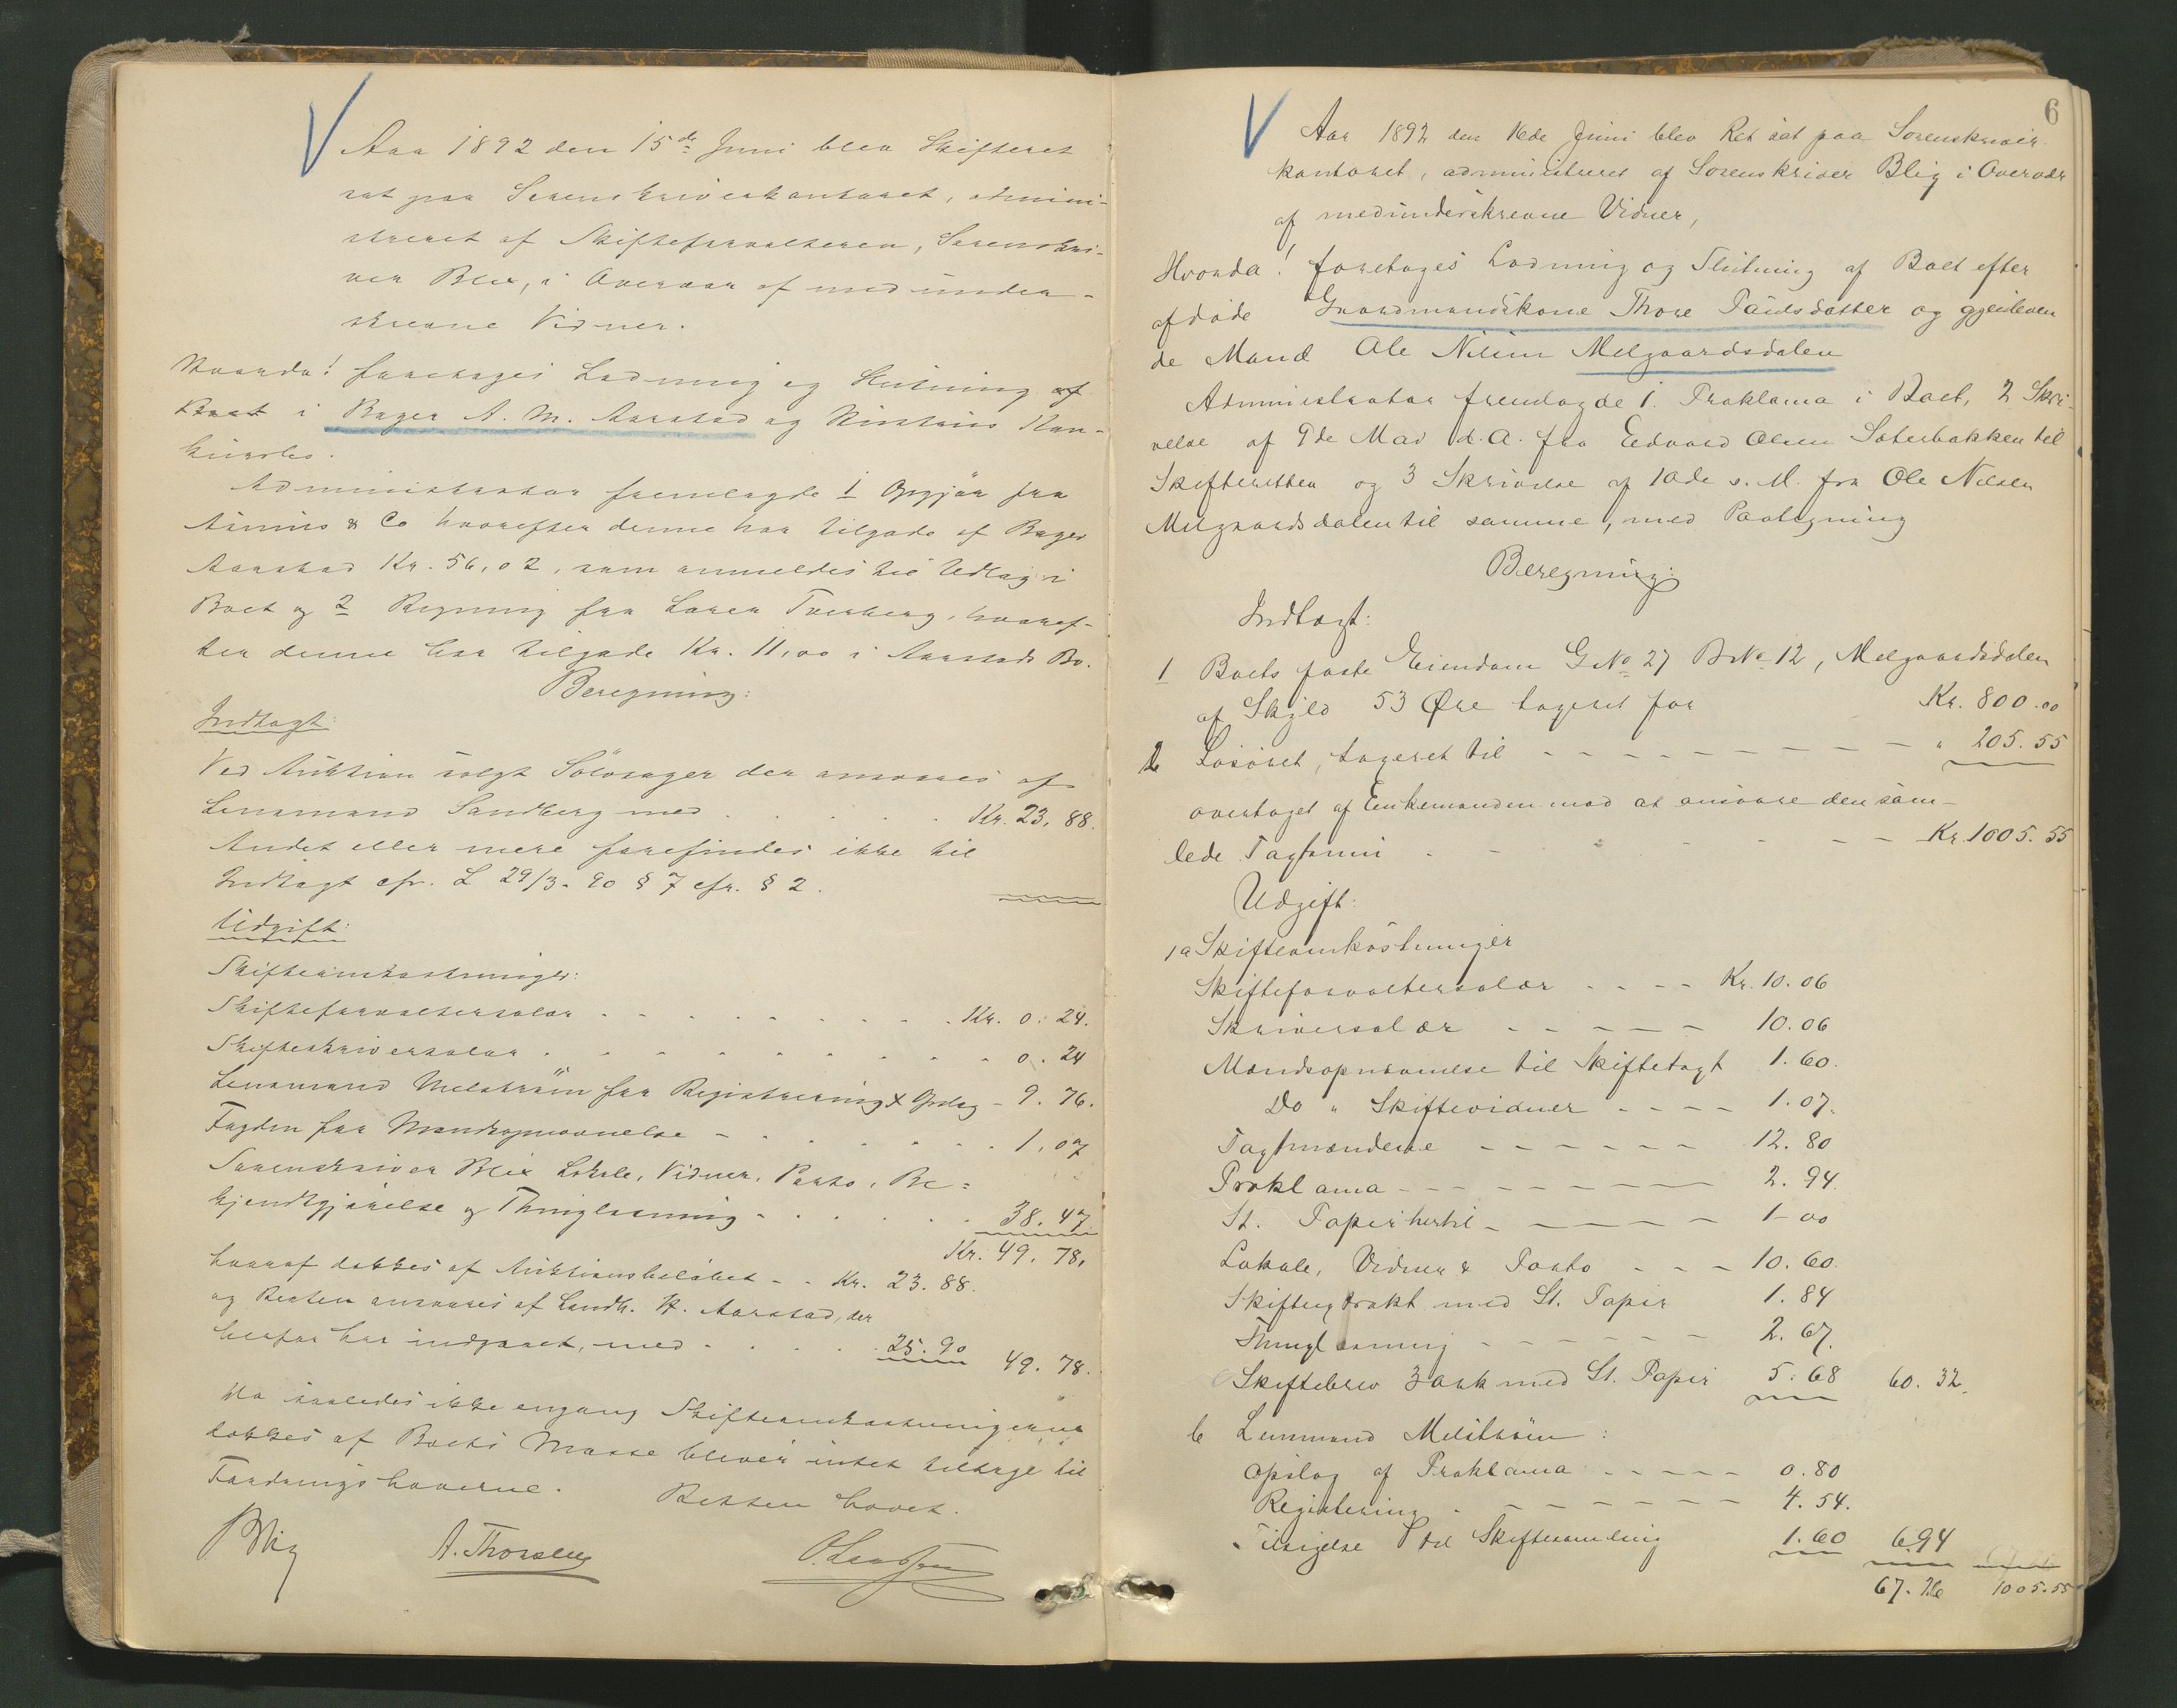 Aar 1892 den 15de Juni blev Skifteret
sat paa Sorenskriverkontoret, admini-
streret af Skifteforvalteren, Sorenskri-
ver Blix, i Overvær af medunder-
skrevne Vidner.
Hvorda! foretages Lodning og Slutning af
Boet i Bager A. M. Aarstad og Hustrus Kon-
kursbo.
Administrator fremlagde 1 Opgjør fra
& Co hvorefter denne har tilgode af Bager
Aarstad Kr. 56,02, som anmeldes til Udlæg i
Boet og 2 Regning fra Loren Tverberg, hvoref-
ter denne har tilgode Kr. 11,00 i Aarstads Bo.
Beregning:
Indtægt:
Ved Auktion solgt Sølvsager der ansvares af
Lensmand Sandberg med . . . . . Kr. 23. 88.
Andet eller mere forefindes ikke til
Indtægt cfr. L 29/3. 90 § 7 cfr. § 2.
Udgift:
Skifteomkostninger:
Skifteforvaltersalær . . . . . . . . Kr. 0. 24.
Skifteskriversalær . . . . . . . . . 0. 24
Lensmand Melstrøm for Registrering & Opslag - 9. 76.
Fogden for Mandsopnævnelse - . . . . . . 1,07
Sorenskriver Blix Lokale, Vidner, Porto, Be=
kjendtgjørelse og Thinglæsning . . . . . 38. 47.
Kr. 49. 78.
hvoraf dækkes af Auktionsbeløbet - - Kr. 23. 88.
og Resten ansvares af Landh. H. Aarstad, der
herfor har indgaaet, med . . . . . 25. 90 49. 78.
Da saaledes ikke engang Skifteomkostningerne
dækkes af Boets Masse bliver intet tilbage til
Fordringshaverne. Retten hævet.
Blix A. Thorsen
6
Aar 1892 den 16de Juni blev Ret sat paa Sorenskriver
kontoret, administreret af Sorenskriver Blix i Overvær
af medunderskrevne Vidner,
Hvorda! foretages Lodning og Slutning af Boet efter
afdøde Gaardmandskone Thore Paulsdatter og gjenleven
de Mand Ole Nilsen Melgaardsdalen
Administrator fremlagde 1. Proklama i Boet, 2 Skri-
velse af 9de Mai d. A. fra Edvard Olsen Sæterbakken til
Skifteretten og 3 Skrivelse af 10de s. M. fra Ole Nilsen
Melgaardsdalen til samme, med Paategning
Beregning:
Indtægt:
1 Boets faste Eiendom G No 27 B No 12, Melgaardsdalen
af Skyld 53 Øre taxeret for Kr. 800.00
2 Løsøret, taxeret til - - - - - - - - - " 205. 55
overtaget af Enkemanden mod at ansvare den sam-
lede Taxtsum - - - - - - Kr. 1005. 55
Udgift:
1 a Skifteomkostninger
Skifteforvaltersalær - - - - Kr. 10. 06
Skriversalær - - - - - 10. 06
Mandsopnævnelse til Skiftetaxt 1. 60.
Do " Skiftevidner - - - - 1. 07.
Taxtmændene - - - - - - 12. 80
Proklama - - - - - - - 2. 94.
St. Papir hertil - - - - - 1 00
Lokale, Vidner & Porto - - - 10. 60.
Skifteextrakt med St. Papir 1. 84
Thinglæsning - - - - - - 2. 67.
Skiftebrev 3 Ark med St. Papir 5. 68 60. 32.
b Lensmand Melstrøm:
Opslag af Proklama - - - - - 0. 80
Registrering - - - - - - - 4. 54.
Tilsigelse til Skiftesamling 1. 60 6.94
67. 26 1005.55